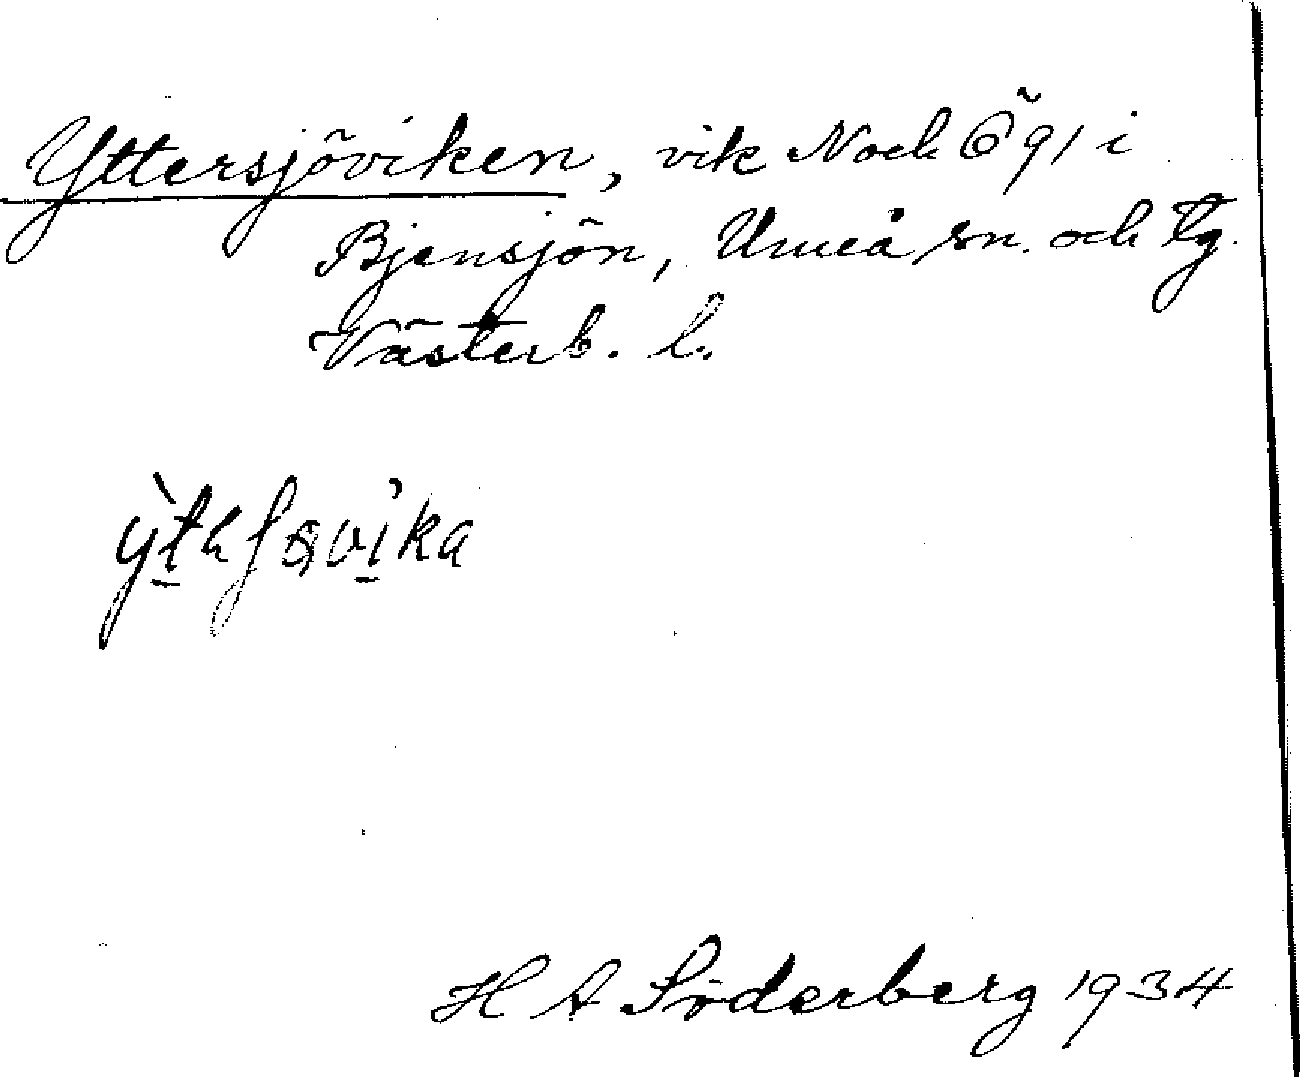 Yttersjöviken, vik N och Ö 91 i
Bjensjön, Umeå sn. och tg.
Västerb. l.
H A Söderberg 1934